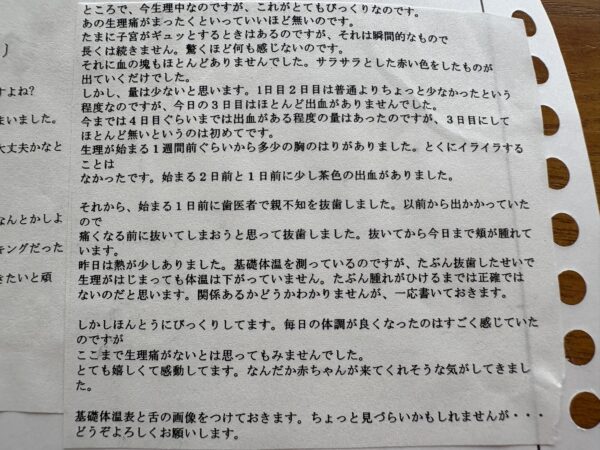 ところで、今生理中なのですが、これがとてもびっくりなのです。
あの生理痛がまったくといっていいほど無いのです。
たまに子宮がギュッとするときはあるのですが、それは瞬間的なもので
長くは続きません。驚くほど何も感じないのです。
それに血の塊もほとんどありませんでした。サラサラとした赤い色をしたものが
出ていくだけでした。
しかし、量は少ないと思います。1日目2日目は普通よりちょっと少なかったという
程度なのですが、今日の3日目はほとんど出血がありませんでした。
今までは4日目ぐらいまでは出血がある程度の量はあったのですが、3日目にして
ほとんど無いというのは初めてです。
生理が始まる1週間前ぐらいから多少の胸のはりがありました。とくにイライラする
ことは
なかったです。始まる2日前と1日前に少し茶色の出血がありました。
それから、始まる1日前に歯医者で親不知を抜歯しました。以前から出かかっていた
ので
痛くなる前に抜いてしまおうと思って抜歯しました。抜いてから今日まで頬が腫れて
います。
昨日は熱が少しありました。基礎体温を測っているのですが、たぶん抜歯したせいで
生理がはじまっても体温は下がっていません。たぶん腫れがひけるまでは正確では
ないのだと思います。関係あるかどうかわかりませんが、一応書いておきます。
しかしほんとうにびっくりしてます。毎日の体調が良くなったのはすごく感じていた
のですが
ここまで生理痛がないとは思ってもみませんでした。
とても嬉しくて感動してます。なんだか赤ちゃんが来てくれそうな気がしてきまし
た。
基礎体温表と舌の画像をつけておきます。ちょっと見づらいかもしれませんが・・・
どうぞよろしくお願いします。
）
すよね？
まいました。
大丈夫かなと
なんとかしよ
キングだった
きたいと頑